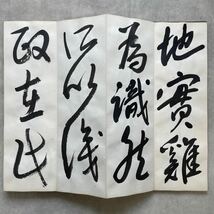 地實難
為識然
所以淺
政在此